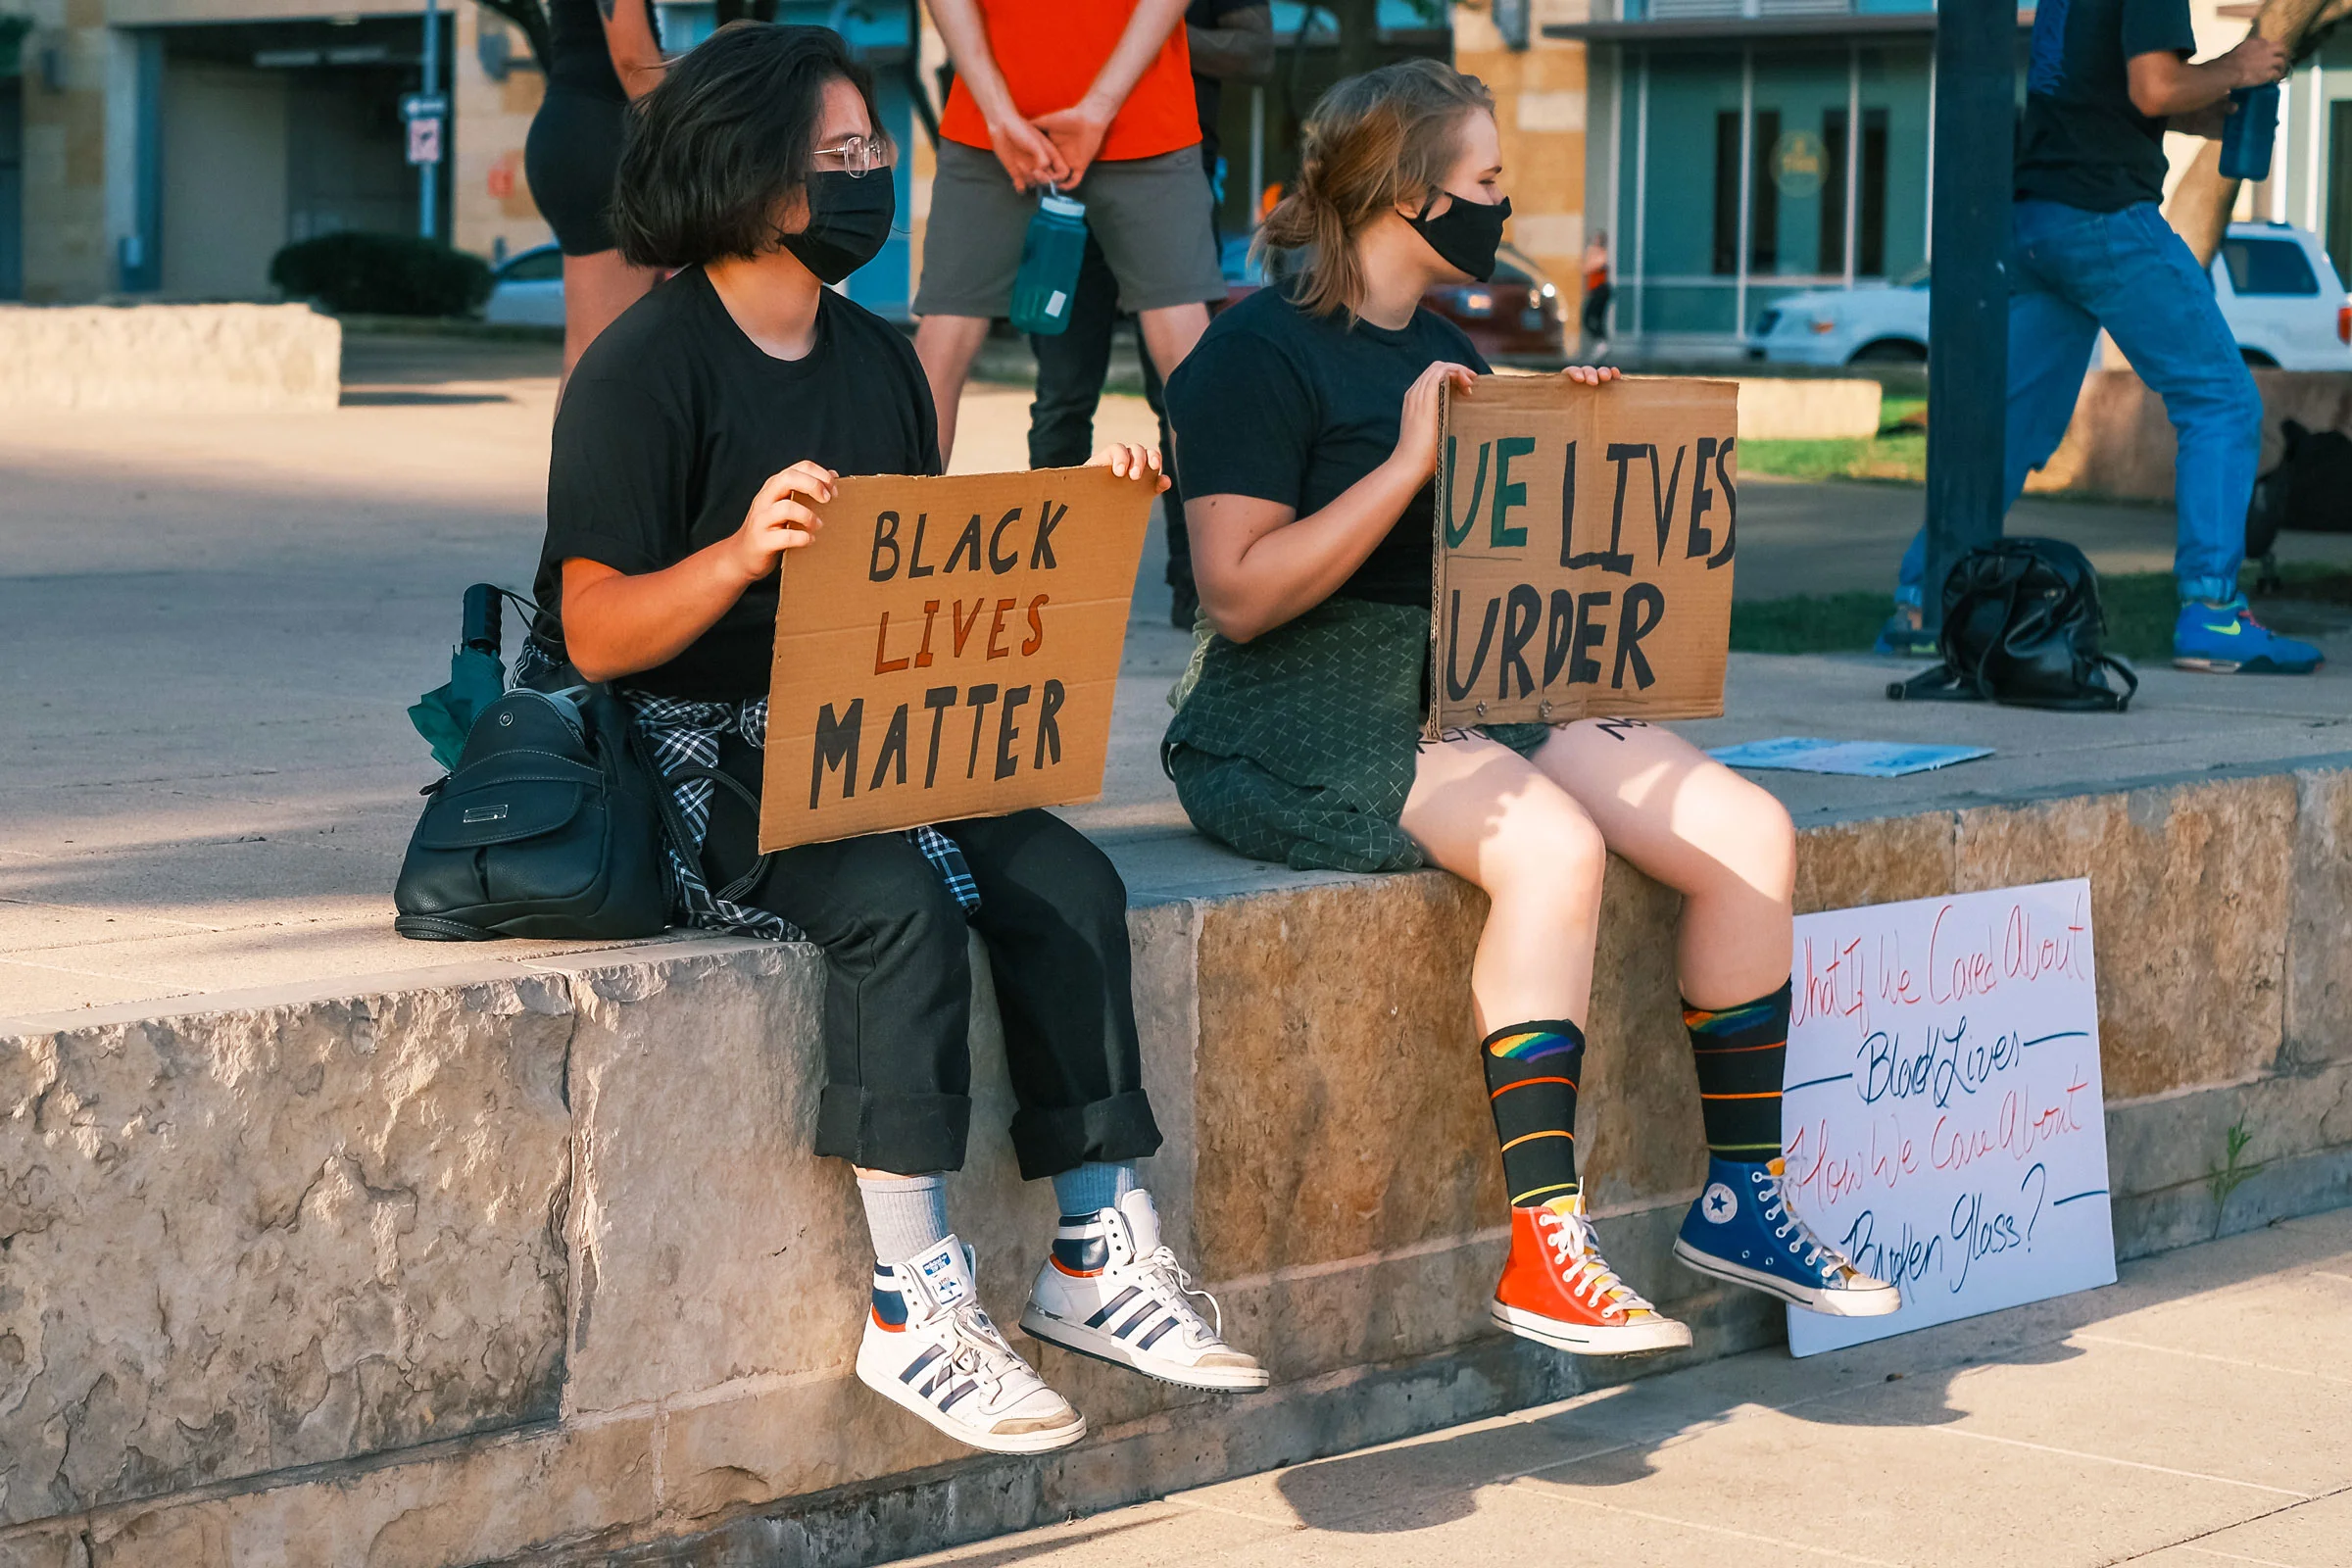 BLACK
LIVES
MATTER
UE LIVES
URDER
NO
What If We Cared About
Black Lives
How We Care About
Broken Glass?